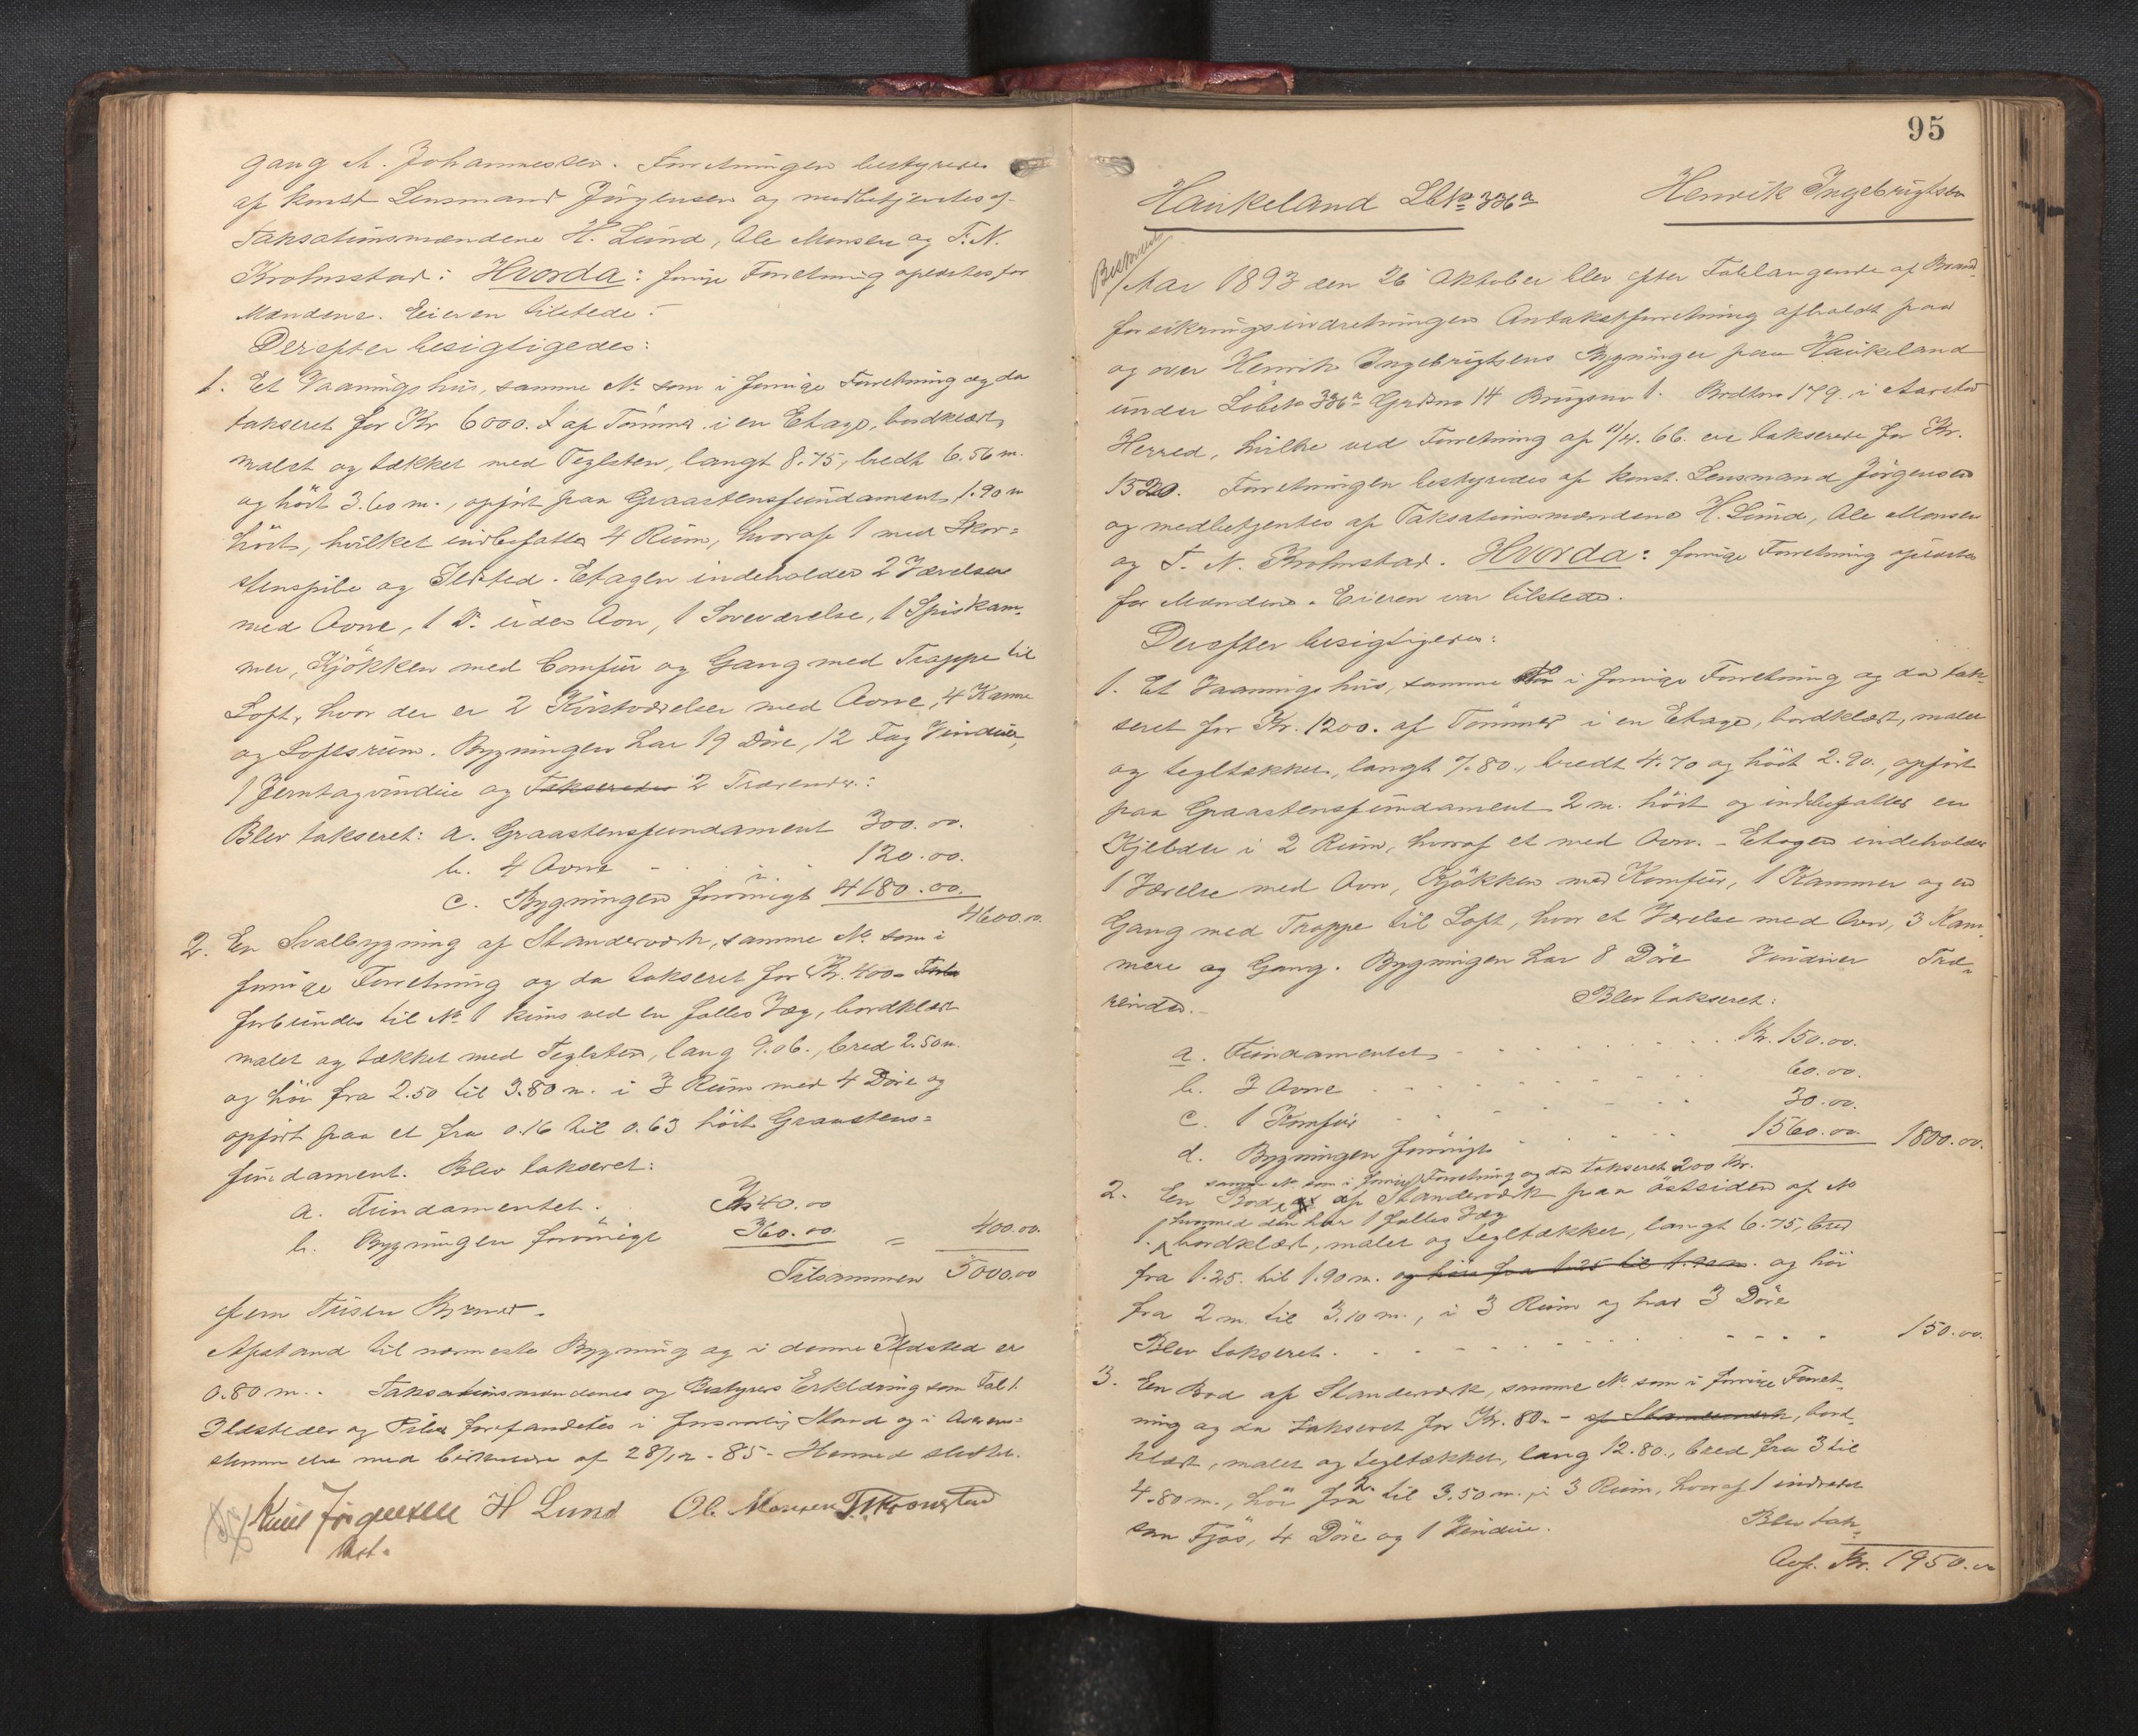 gang A. Johannessen. Forretningen bestyredes
af konst Lensmand Jörgensen og medbetjentes af
Taksationsmændene H. Lund, Ole Monsen og T. N.
Krohnstad: Hvorda: forrige Forretning oplæstes for
Mændene. Eieren tilstede.
Derefter besigtigedes:
1. Et Vaaningshus, samme No som i forrige Forretning og da
takseret for Kr 6000. af Tømmer i en Etage, bordklædt,
malet og tækket med Teglsten, langt 8.75, bredt 6.56 m.
og höit 3.60 m., opført paa Graastensfundament 1.90 m
höit, hvilket indbefatter 4 Rum, hvoraf 1 med Skor=
stenspibe og Ildsted. Etagen indeholder 2 Værelser
med Ovne, 1 Do uden Ovn, 1 Soveværelse, 1 Spiskam-
mer, Kjökken med Comfur og Gang med Trappe til
Loft, hvor der er 2 Kvistværelser med Ovne, 4 Kamre
og Loftsrum. Bygningen har 19 Döre, 12 Fag Vinduer,
1 Jerntagvindue og Takseredes 2 Trærender.:
Blev takseret: a. Graastensfundament 300.00.
b. 4 Ovne - . . . 120.00.
c. Bygningen forövrigt 4180.00.
4600.00.
2. En Svalbygning af Standerværk, samme No som i
forrige Forretning og da takseret for Kr. 400-
forbunden til No 1 kuns ved en fælles Væg, bordklædt
malet og tækket med Teglsten, lang 9.06., bred 2.50 m.
og höi fra 2.50 til 3.80 m. i 3 Rum med 4 Döre og
opført paa et fra 0.16 til 0.63 höit Graastens=
fundament. Blev takseret:
a. Fundamentet . Kr 40.00
b. Bygningen forövrigt 360.00 = 400.00.
Tilsammen 5000.00
Fem Tusen Kroner.
Afstand til nærmeste Bygning og i denne Ildsted er
0.80 m.. Taksationsmændenes og Bestyrers Erklæring som Fol 1.
Ildsteder og Piber forefandtes i forsvarlig Stand og i Overens=
stemmelse med Cirkulære af 28/12-85- Hermed sluttet.
Knut Jörgensen H Lund Ole Monsen T. N. Kronstad
kst.
95
Haukeland LbNo 336a Henrik Ingebrigtsen
Aar 1893 den 26 Oktober blev efter Forlangende af Brand-
forsikringsindretningen Omtakstforretning afholdt paa
og over Henrik Ingebrigtsens Bygninger paa Haukeland
under Löbeno 336a Grdsno 14 Brugsno 1. Brdtno 179. i Aarstad
Herred, hvilke ved Forretning af 11/4. 66. ere takserede for Kr.
1520. Forretningen bestyredes af konst. Lensmand Jörgensen
og medbetjentes af Taksationsmændene H. Lund, Ole Monsen
og T. N. Krohnstad. Hvorda: forrige Forretning oplæstes
for Mændene. Eieren var tilstede.
Derefter besigtigedes:
1. Et Vaaningshus, samme No i forrige Forretning og da tak-
seret for Kr. 1200. af Tømmer i en Etage, bordklædt, malet
og tegltækket, langt 7.80., bredt 4.70 og höit 2.90., opført
paa Graastensfundament 2 m. höit og indbefatter en
Kjelder i 2 Rum, hvoraf et med Ovn. - Etagen indeholder
1 Værelse med Ovn, Kjökken med Komfur, 1 Kammer og en
Gang med Trappe til Loft, hvor et Værelse med Ovn, 3 Kam-
mere og Gang. Bygningen har 8 Döre Vinduer Træ-
render.- Blev takseret:
a. Fundamentet - . . . Kr. 150.00.
b. 3 Ovne . . . 60.00.
c. 1 Komfur . . . 30.00.
d. Bygningen forövrigt . . . 1560.00. 1800.00.
samme No som i forrige Forretning og da takseret 200 Kr.
2. En Bod, af Standerværk paa östsiden af No
hvormed den har 1 fælles Væg
1. bordklædt, malet og tegltækket, langt 6.75, bred
fra 1.25. til 1.90 m. og höi fra 1.25 til 1.90 m. og höi
fra 2 m. til 3.10 m., i 3 Rum og har 3 Döre
Blev takseret. . . . 150.00.
3. En Bod af Standerværk, samme No som i forrige Forret-
ning og da takseret for Kr. 80.- af Standerværk, bord-
klædt, malet og tegltækket, lang 12.80., bred fra 3 til
4.80 m., höi fra 2 til 3.50 m., i 3 Rum, hvoraf 1 indredet
som Fjös, 4 Döre og 1 Vindue. Blev tak-
Ovf. Kr. 1950.00